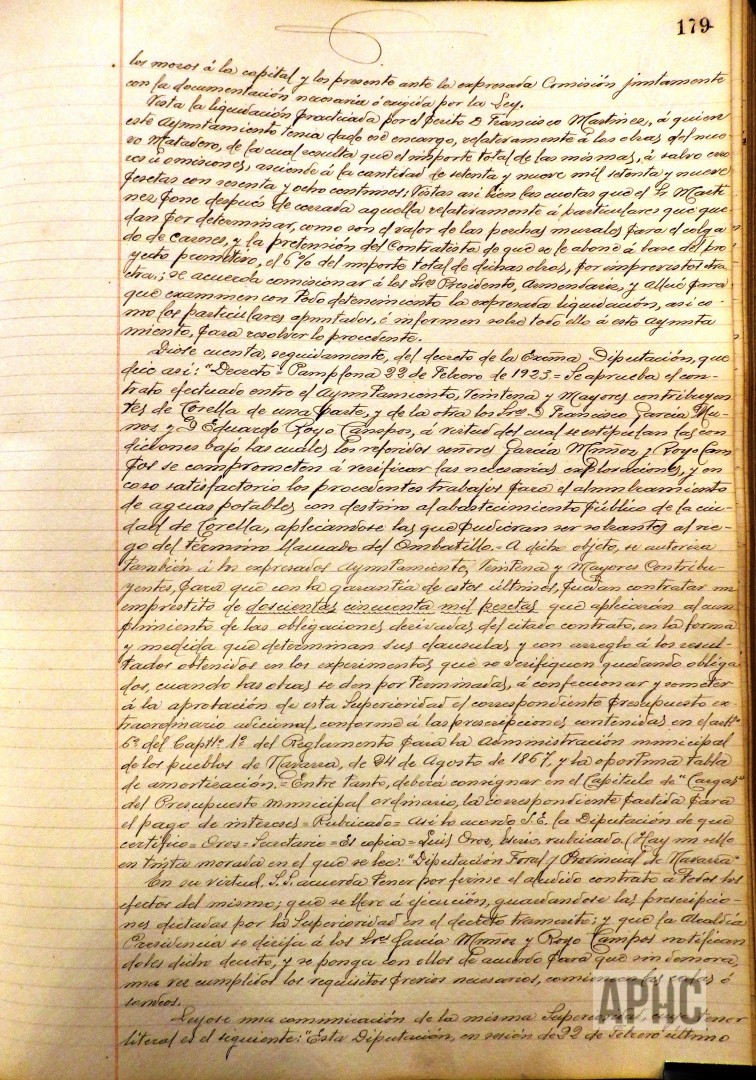 179
los mozos á la capital y los presente ante la expresada Comisión juntamente
con la documentación necesaria ó exigida por la Ley.
Vista la liquidación practicada por el perito D Francisco Martinez, á quien
este Ayuntamiento tenia dado ese encargo, relativamente á las obras del nue
vo Matadero, de la cual resulta que el importe total de las mismas, á salvo erro
res ú omisiones, asciende á la cantidad de setenta y nueve mil setenta y nueve
pesetas con sesenta y ocho centimos; Vistas asi bien las cuotas que el Sr Marti
nez pone después de cerrada aquella relativamente á particulares que que
dan por determinar, como son el valor de las perchas murales para el colga
do de carnes, y la pretensión del Contratista de que se le abone á base del pro
yecto primitivo, el 6% del importe total de dichas obras, por imprevistos etc
etra.; se acuerda comisionar á los Sres Presidente, Armendariz, y Allué para
que examinen con todo detenimiento la expresada liquidación, asi co-
mo los particulares apuntados, é informen sobre todo ello á este Ayunta
miento, para resolver lo procedente.
Diose cuenta, seguidamente, del decreto de la Excma Diputación, que
dice asi: "Decreto = Pamplona 22 de Febrero de 1923 = Se aprueba el con-
trato efectuado entre el Ayuntamiento, Veintena y Mayores contribuyen
tes de Corella de una parte, y de la otra los Sres D Francisco Garcia Mu-
ñoz y D Eduardo Royo Campos, á virtud del cual se estipulan las con
diciones bajo las cuales los referidos señores Garcia Muñoz y Royo Cam
pos se comprometen á verificar las necesarias exploraciones, y en
caso satisfactorio los procedentes trabajos para el alumbramiento
de aguas potables con destino al abastecimiento público de la ciu-
dad de Corella, aplicandose las que pudieran ser sobrantes al rie-
go del término llamado del Ombatillo. = A dicho objeto, se autoriza
también á los expresados Ayuntamiento, Veintena y Mayores Contribu-
yentes, para que con la garantia de estos últimos, puedan contratar un
empréstito de doscientas cincuenta mil pesetas que aplicarán al cum
plimiento de las obligaciones derivadas del citado contrato, en la forma
y medida que determinan sus clausulas y con arreglo á los resul-
tados obtenidos en los experimentos que se verifiquen quedando obliga
dos, cuando las obras se den por terminadas, á confeccionar y someter
á la aprobación de esta Superioridad el correspondiente presupuesto ex-
traordinario adicional, conforme á las prescripciones contenidas en el artº
6º del Capítº 1º del Reglamento para la administración municipal
de los pueblos de Navarra, de 24 de Agosto de 1867, y la oportuna tabla
de amortización. = Entre tanto, deberá consignar en el Capitulo de "Cargas"
del Presupuesto municipal ordinario, la correspondiente partida para
el pago de intereses = Rubricado = Asi lo acordó S.E. la Diputación de que
certifico = Oroz = Secretario = Es copia = Luis Oroz, Srio, rubricado. (Hay un sello
en tinta morada en el que se lee: "Diputación Foral y Provincial de Navarra"
En su virtud, S.S. acuerda tener por firme el aludido contrato á todos los
efectos del mismo; que se lleve á ejecución, guardandose las prescripcio-
nes dictadas por la Superioridad en el decreto transcrito; y que la Alcaldía
Presidencia se dirija á los Sres Garcia Muñoz y Royo Campos notifican
doles dicho decreto, y se ponga con ellos de acuerdo para que sin demora,
una vez cumplidos los requisitos previos necesarios, comiencen las catas ó
sondeos.
Leyose una comunicación de la misma Superioridad, cuyo tenor
literal es el siguiente: "Esta Diputación, en sesión de 22 de Febrero último
APHC